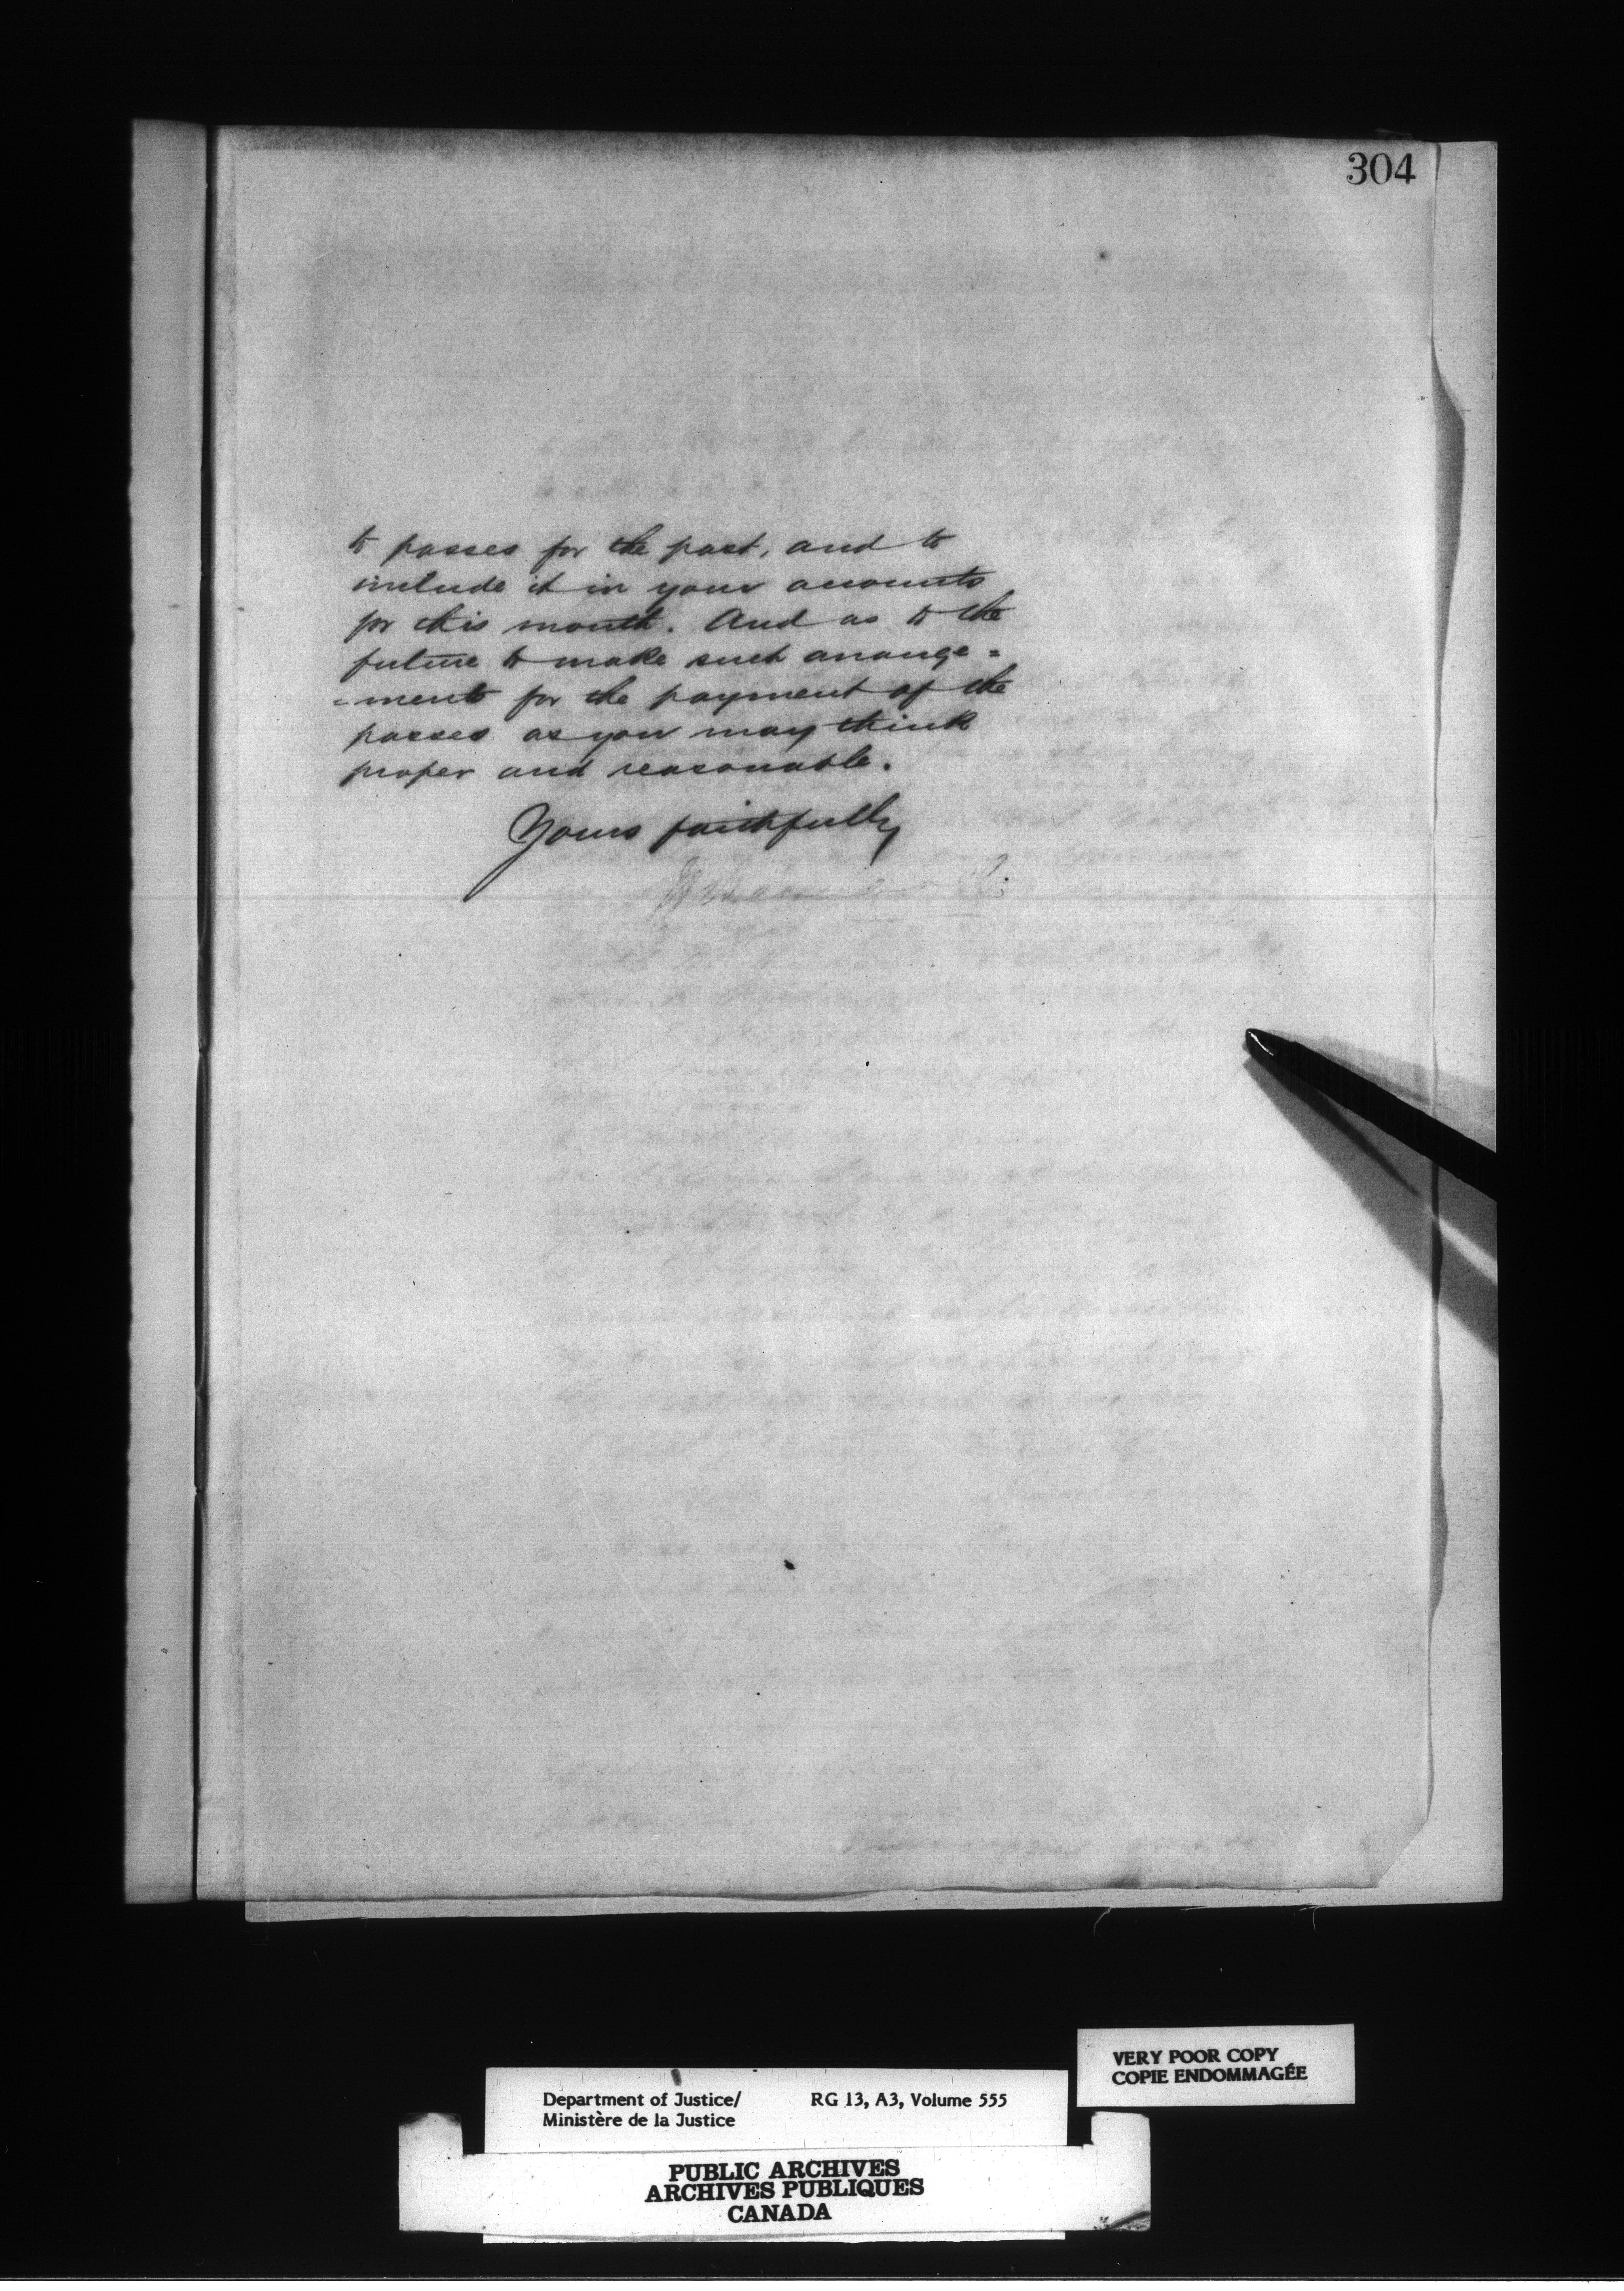 304
to passes for the past, and to
include it in your accounts
for this month. And as to the
future to make such arrange=
=ments for the payment of the
passes as you may think
proper and reasonable.
Yours faithfully
VERY POOR COPY
COPIE ENDOMMAGÉE
Department of Justice/ RG 13, A3, Volume 555
Ministère de la Justice
PUBLIC ARCHIVES
ARCHIVES PUBLIQUES
CANADA